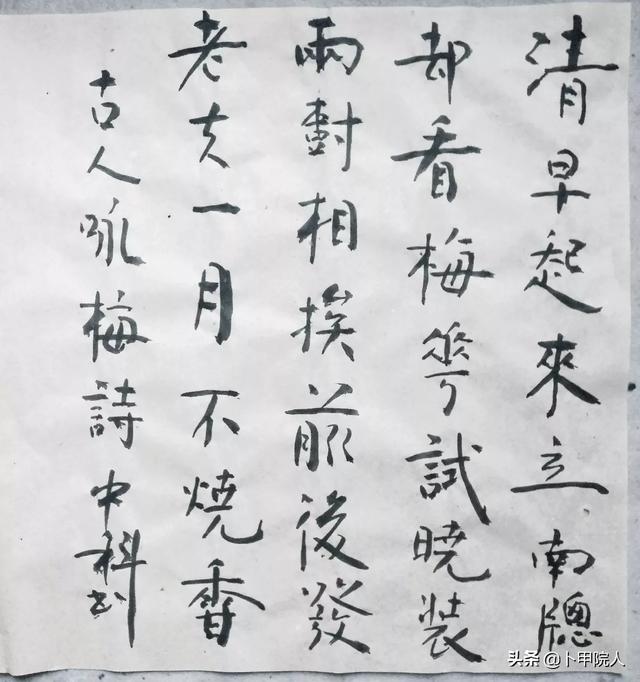 清早起來立南牕
却看梅華試曉裝
兩對相挨前後發
老夫一月不燒香
古人咏梅詩 中科書
头条 @卜甲院人